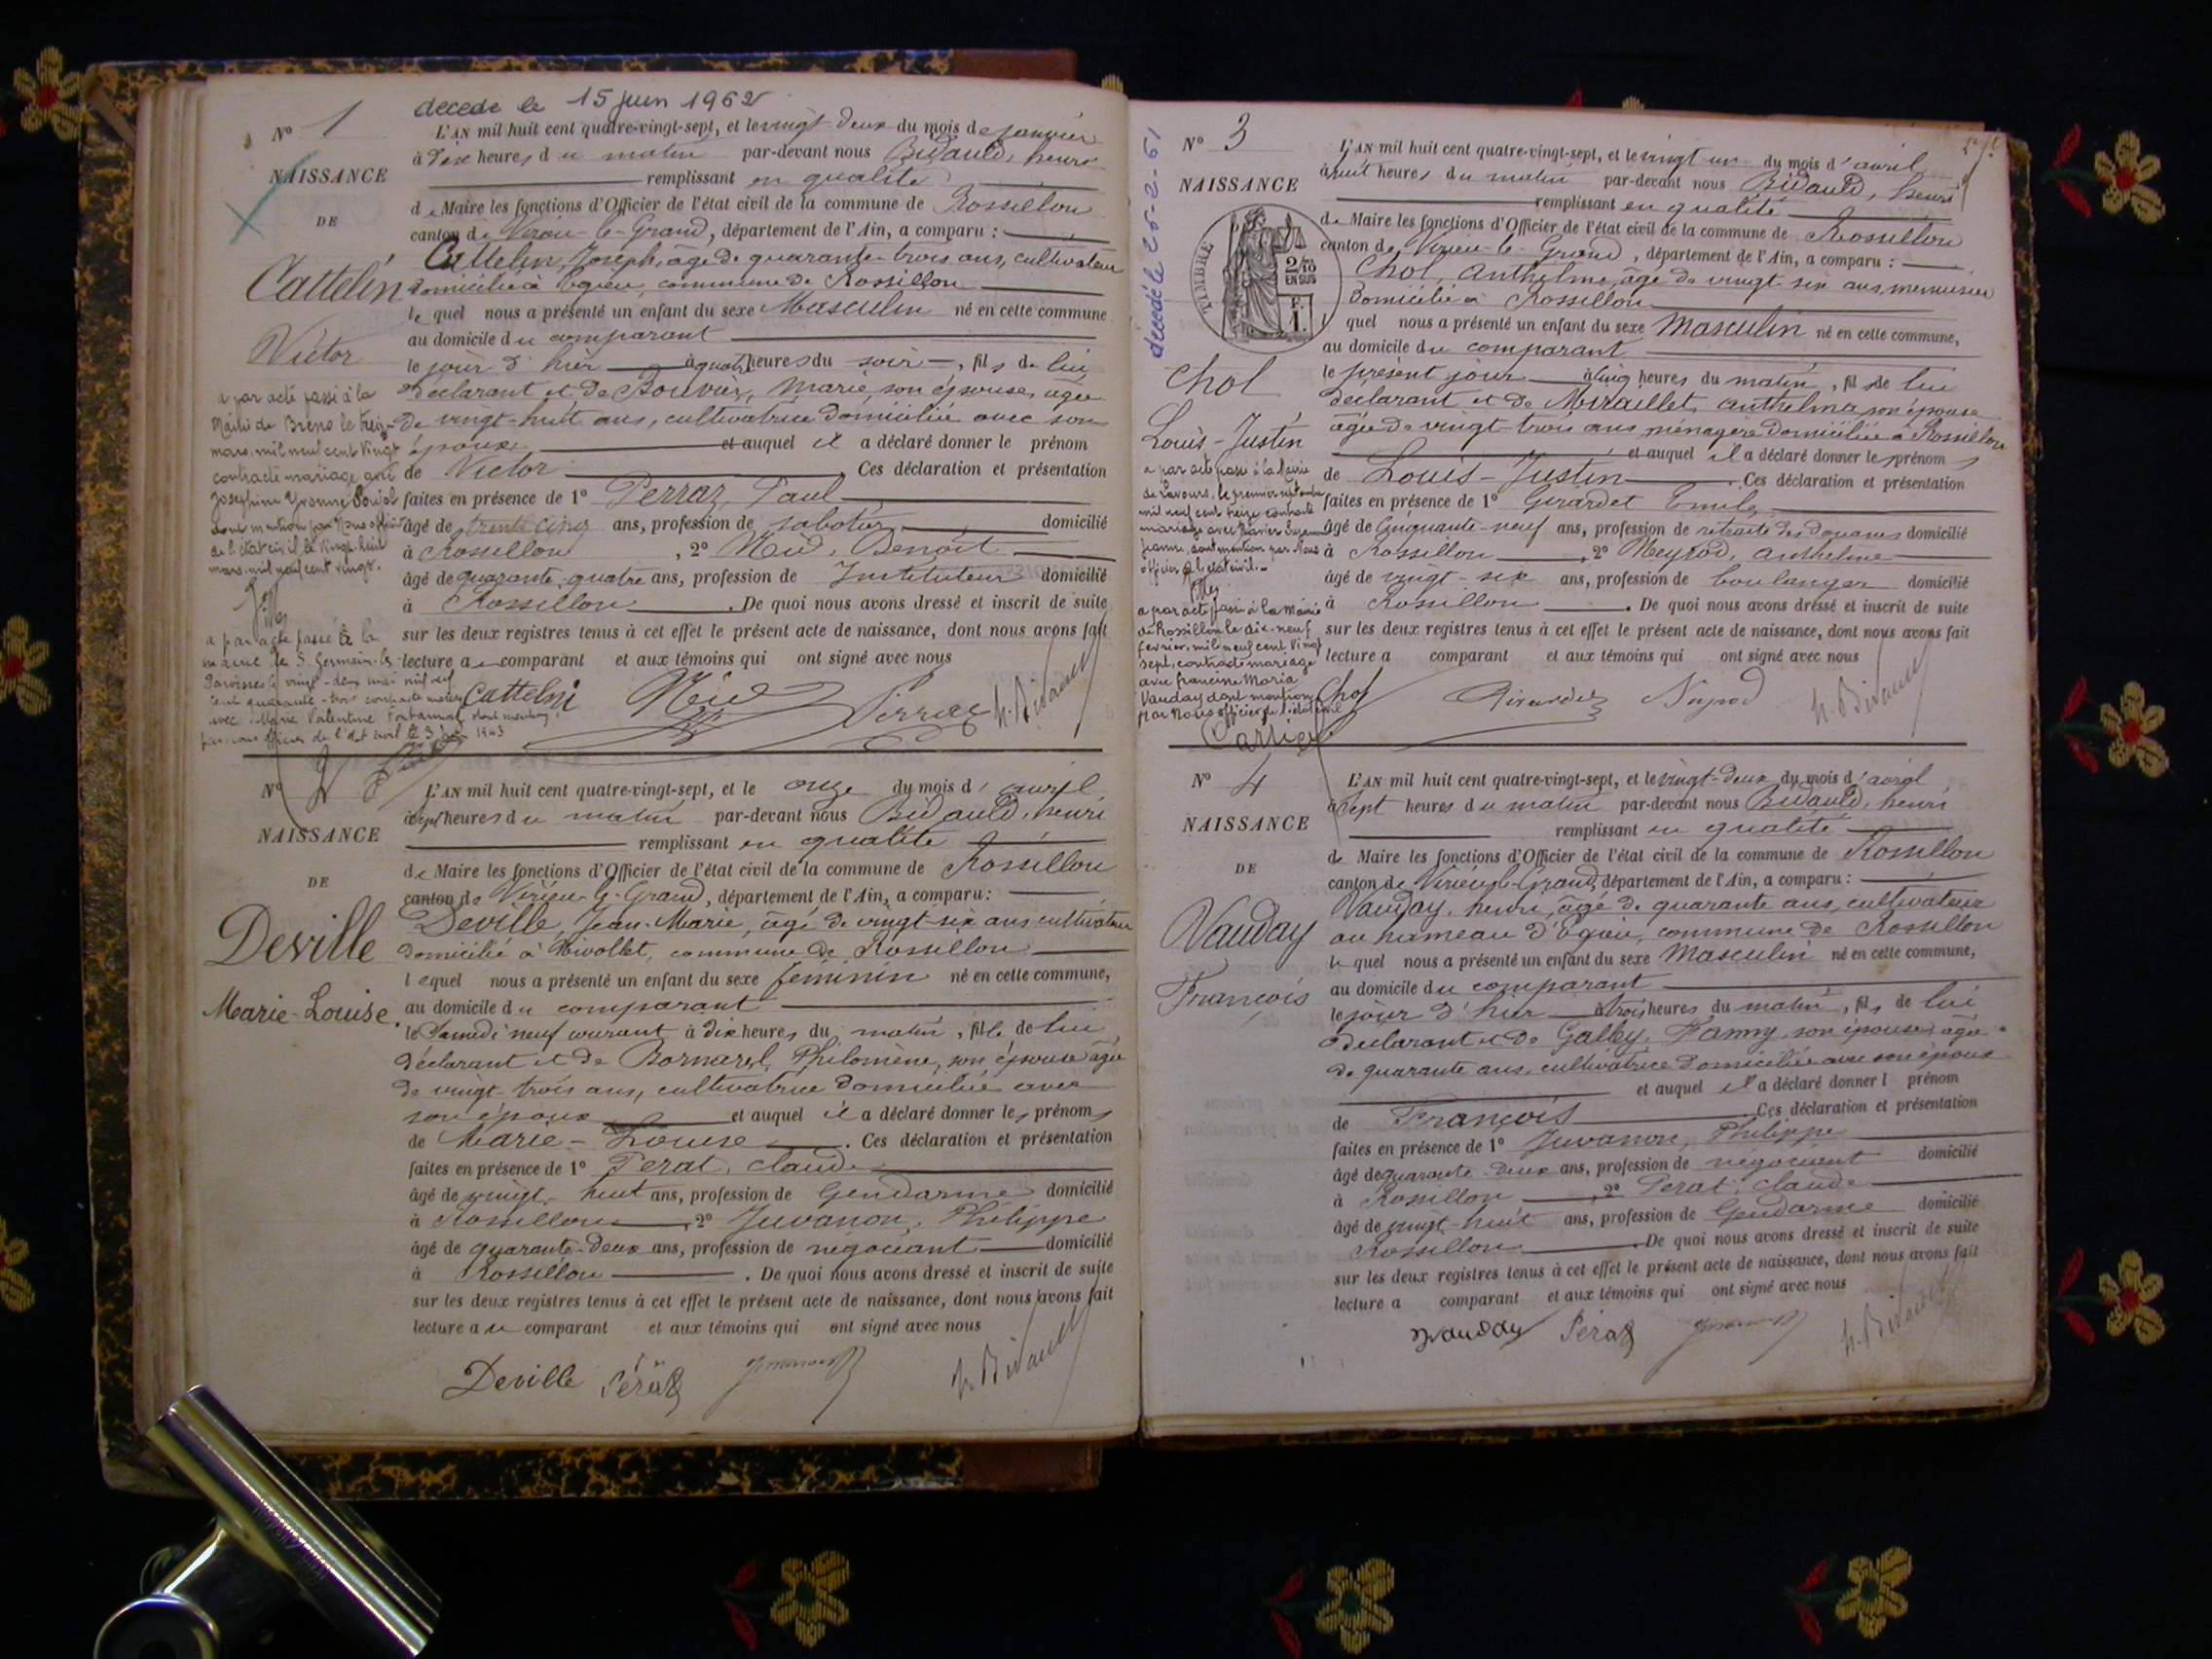 decede le 15 juin 1962
N° 1
NAISSANCE
DE
Cattelin
Victor
L'AN mil huit cent quatre-vingt-sept, et le vingt-deux du mois de janvier
à dix heures du matin par-devant nous Bidauld, henri
remplissant en qualité
de Maire les fonctions d'Officier de l'état civil de la commune de Rossillon
canton de Virieu-le-Grand, département de l'Ain, a comparu :
Cattelin, Joseph, âgé de quarante-trois ans, cultivateur
domicilié à Egieu, commune de Rossillon
le quel nous a présenté un enfant du sexe Masculin né en cette commune
au domicile du comparant
le jour d'hier à quatre heures du soir, fils de lui
déclarant et de Bouvier, Marie, son épouse, âgée
de vingt-huit ans, cultivatrice domiciliée avec son
époux et auquel il a déclaré donner le prénom
de Victor. Ces déclaration et présentation
faites en présence de 1° Perraz, Paul
âgé de trente cinq ans, profession de sabotier domicilié
à Rossillon, 2° Benoît
âgé de quarante quatre ans, profession de Instituteur domicilié
à Rossillon. De quoi nous avons dressé et inscrit de suite
sur les deux registres tenus à cet effet le présent acte de naissance, dont nous avons fait
lecture au comparant et aux témoins qui ont signé avec nous
a par acte passé à la
Mairie de Brens le treize
mars mil neuf cent vingt
contracté mariage avec
Joséphine Yvonne Soujol
dont mention par Nous officier
de l'état civil le vingt-huit
mars mil neuf cent vingt.
a par acte passé à la
mairie de S. Germain-les-
Paroisses le vingt-deux mai mil neuf
cent quarante-trois contracté mariage
avec Marie Valentine dont mention
par nous officier de l'état civil le 3 juin 1943
Cattelin Perraz h. Bidauld
N° 2
NAISSANCE
DE
Deville
Marie-Louise
L'AN mil huit cent quatre-vingt-sept, et le onze du mois d'avril
à sept heures du matin par-devant nous Bidauld, henri
remplissant en qualité
de Maire les fonctions d'Officier de l'état civil de la commune de Rossillon
canton de Virieu-le-Grand, département de l'Ain, a comparu :
Deville, Jean-Marie, âgé de vingt-six ans cultivateur
domicilié à Rivollet, commune de Rossillon
lequel nous a présenté un enfant du sexe féminin né en cette commune,
au domicile du comparant
le Samedi neuf courant à dix heures du matin, fille de lui
déclarant et de Bornarel, Philomène, son épouse âgée
de vingt-trois ans, cultivatrice domiciliée avec
son époux et auquel il a déclaré donner les prénoms
de Marie-Louise. Ces déclaration et présentation
faites en présence de 1° Perat, claude
âgé de vingt-huit ans, profession de Gendarme domicilié
à Rossillon, 2° Juvanon, Philippe
âgé de quarante-deux ans, profession de négociant domicilié
à Rossillon. De quoi nous avons dressé et inscrit de suite
sur les deux registres tenus à cet effet le présent acte de naissance, dont nous avons fait
lecture au comparant et aux témoins qui ont signé avec nous
Deville Pérat h. Bidauld
décédé le 26-2-61
N° 3
NAISSANCE
TIMBRE
2/10
EN SUS
F.
1.
Chol
Louis-Justin
L'AN mil huit cent quatre-vingt-sept, et le vingt-un du mois d'avril
à huit heures du matin par-devant nous Bidauld, henri
remplissant en qualité
de Maire les fonctions d'Officier de l'état civil de la commune de Rossillon
canton de Virieu-le-Grand, département de l'Ain, a comparu :
Chol, Anthelme, âgé de vingt-six ans, menuisier
Domicilié à Rossillon
l quel nous a présenté un enfant du sexe Masculin né en cette commune,
au domicile du comparant
le présent jour à cinq heures du matin, fils de lui
déclarant et de Miraillet, anthelma, son épouse
âgée de vingt-trois ans, ménagère domiciliée à Rossillon
et auquel il a déclaré donner les prénoms
de Louis-Justin. Ces déclaration et présentation
faites en présence de 1° Girardet Emile
âgé de Cinquante-neuf ans, profession de retraité des douanes domicilié
à Rossillon, 2° Neyrod, anthelme
âgé de vingt-six ans, profession de boulanger domicilié
à Rossillon. De quoi nous avons dressé et inscrit de suite
sur les deux registres tenus à cet effet le présent acte de naissance, dont nous avons fait
lecture a comparant et aux témoins qui ont signé avec nous
a par acte passé à la Mairie
de Lavours, le premier
mil neuf cent treize contracté
mariage avec
Jeanne, dont mention par Nous
officier de l'état civil.
a par acte passé à la Mairie
de Rossillon le dix-neuf
février, mil neuf cent vingt
sept, contracté mariage
avec francine Maria
Vauday dont mention
par Nous officier de l'état civil
Chol h. Bidauld
N° 4
NAISSANCE
DE
Vauday
François
L'AN mil huit cent quatre-vingt-sept, et le vingt-deux du mois d'avril
à sept heures du matin par-devant nous Bidauld, henri
remplissant en qualité
de Maire les fonctions d'Officier de l'état civil de la commune de Rossillon
canton de Virieu-le-Grand, département de l'Ain, a comparu :
Vauday, henri, âgé de quarante ans, cultivateur
au hameau d'Egieu, commune de Rossillon
le quel nous a présenté un enfant du sexe Masculin né en cette commune,
au domicile du comparant
le jour d'hier à trois heures du matin, fils de lui
déclarant et de Galley, Fanny, son épouse, âgée
de quarante ans, cultivatrice domiciliée avec son époux
et auquel il a déclaré donner l prénom
de François. Ces déclaration et présentation
faites en présence de 1° Juvanon, Philippe
âgé de quarante-deux ans, profession de négociant domicilié
à Rossillon, 2° Perat, claude
âgé de vingt-huit ans, profession de Gendarme domicilié
Rossillon. De quoi nous avons dressé et inscrit de suite
sur les deux registres tenus à cet effet le présent acte de naissance, dont nous avons fait
lecture a comparant et aux témoins qui ont signé avec nous
Vauday Pérat h. Bidauld